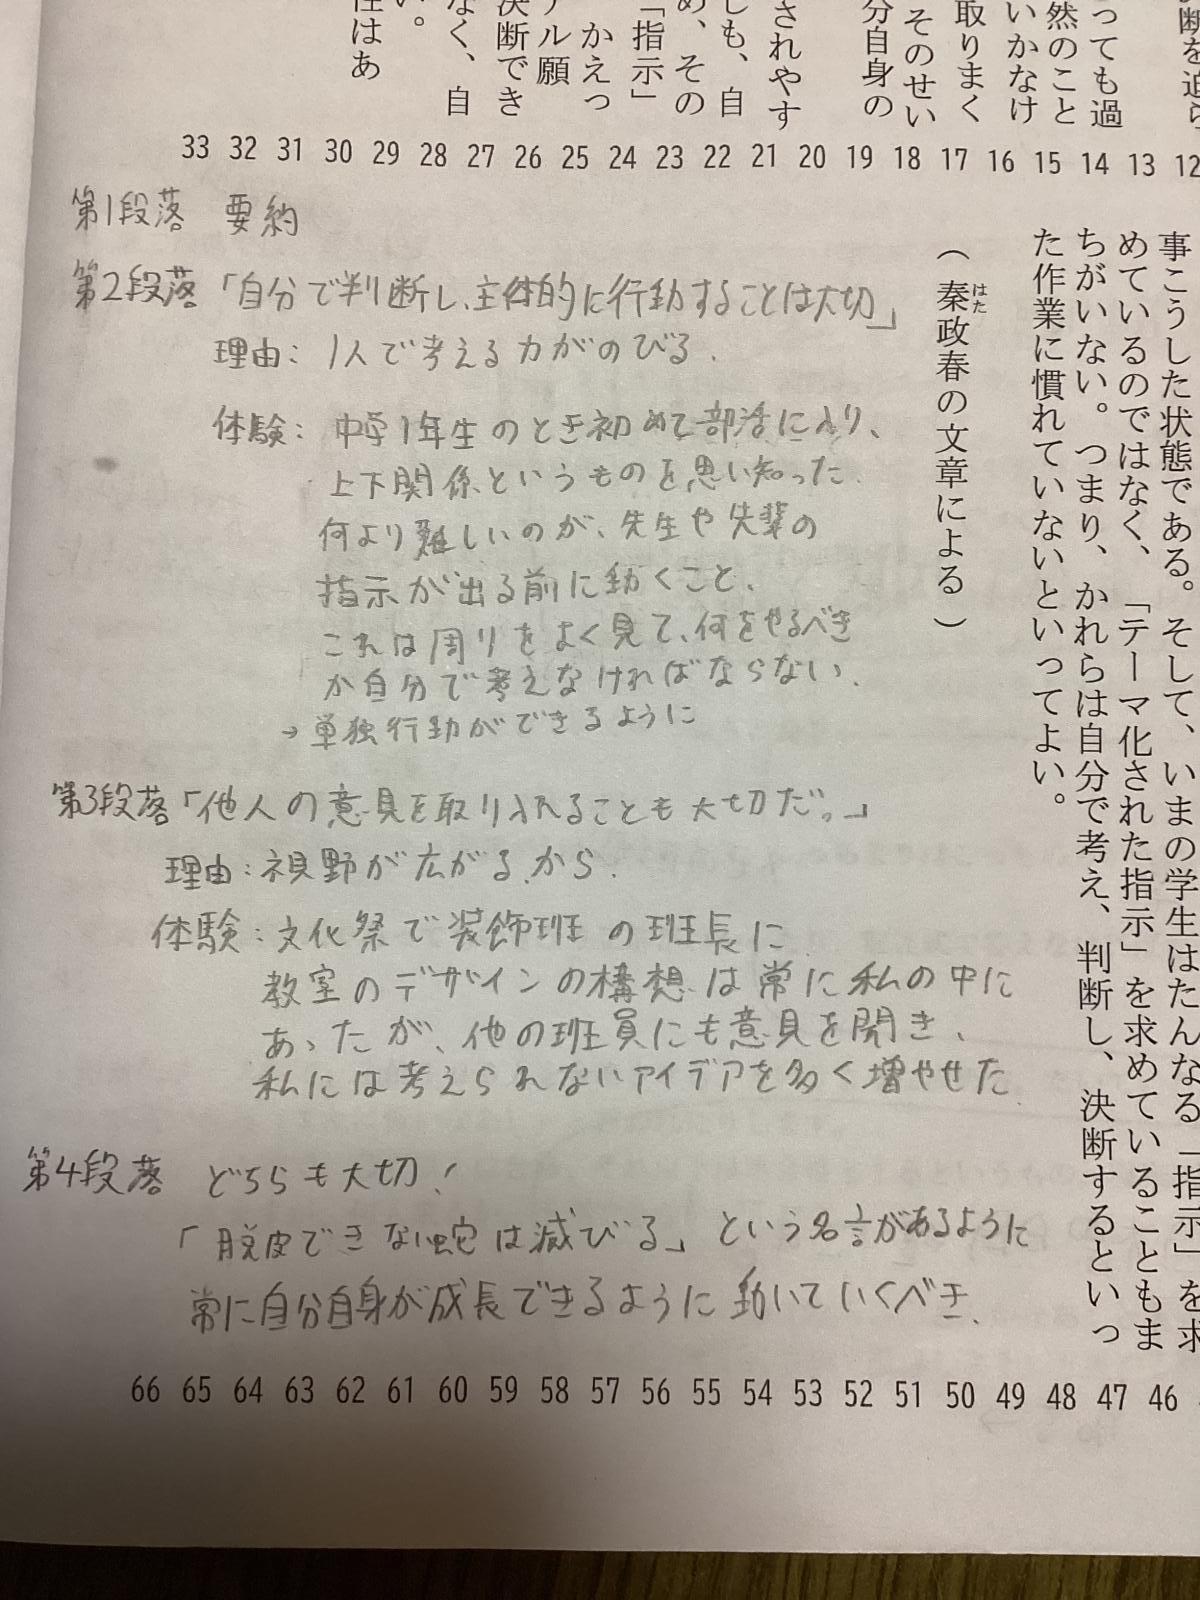 断を迫ら
っても過
然のこと
いかなけ
取りまく
そのせい
分自身の
されやす
しも、自
め、その
「指示」
かえっ
アル願
決断でき
なく、自
い。
性はあ
33 32 31 30 29 28 27 26 25 24 23 22 21 20 19 18 17 16 15 14 13 12
事こうした状態である。そして、いまの学生はたんなる「指示」を求
めているのではなく、「テーマ化された指示」を求めていることもま
ちがいない。つまり、かれらは自分で考え、判断し、決断するといっ
た作業に慣れていないといってよい。
（秦政春の文章による）
はた
第1段落 要約
第2段落「自分で判断し、主体的に行動することは大切」
理由：1人で考える力がのびる.
体験：中学1年生のとき初めて部活に入り、
上下関係というものを思い知った.
何より難しいのが、先生や先輩の
指示が出る前に動くこと、
これは周りをよく見て、何をやるべき
か自分で考えなければならない.
→単独行動ができるように
第3段落「他人の意見を取り入れることも大切だ。」
理由：視野が広がるから.
体験：文化祭で装飾班の班長に
教室のデザインの構想は常に私の中に
あったが、他の班員にも意見を聞き、
私には考えられないアイデアを多く増やせた.
第4段落 どちらも大切！
「脱皮できない蛇は滅びる」という名言があるように
常に自分自身が成長できるように動いていくべき.
66 65 64 63 62 61 60 59 58 57 56 55 54 53 52 51 50 49 48 47 46